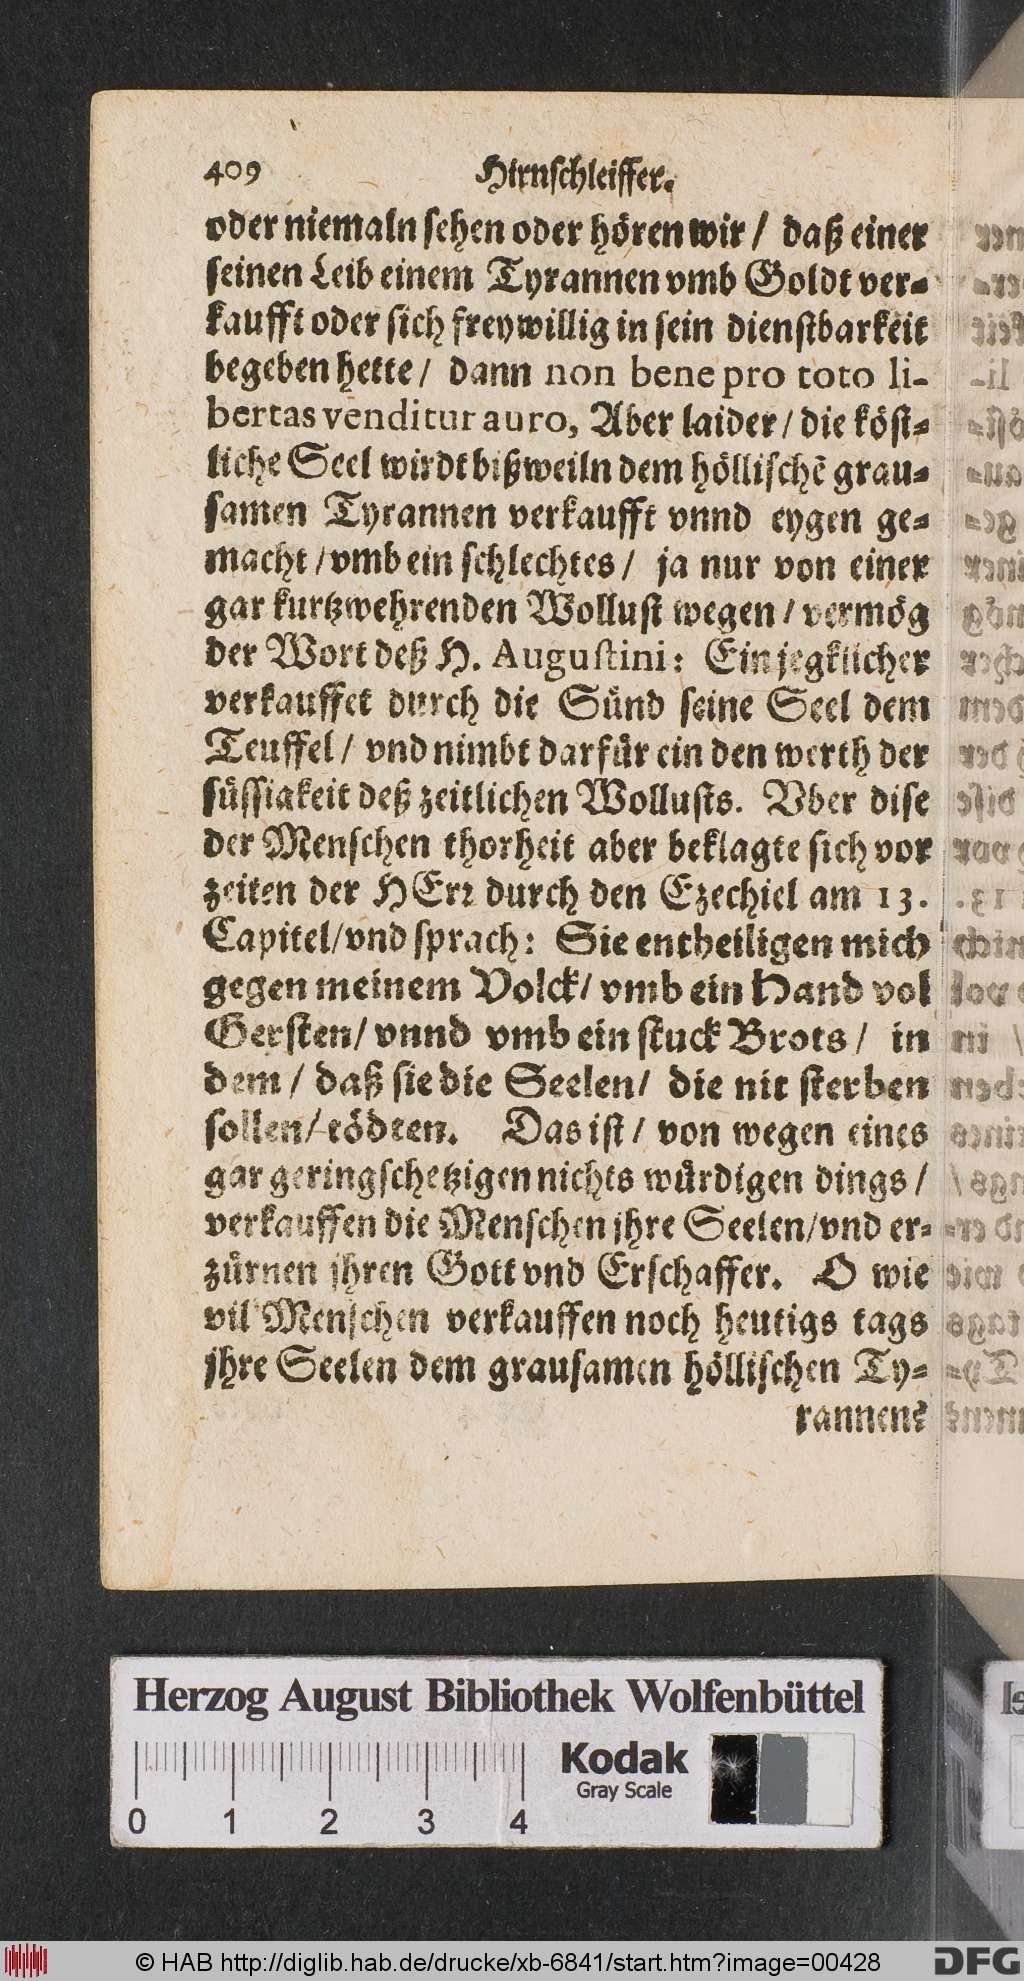 409 Hirnschleiffer.
oder niemaln sehen oder hören wir / daß einer
seinen Leib einem Tyrannen vmb Goldt ver-
kaufft oder sich freywillig in sein dienstbarkeit
begeben hette / dann non bene pro toto li-
bertas venditur auro, Aber laider / die köst-
liche Seel wirdt bißweiln dem höllischē grau-
samen Tyrannen verkaufft vnnd eygen ge-
macht / vmb ein schlechtes / ja nur von einer
gar kurtzwehrenden Wollust wegen / vermög
der Wort deß H. Augustini: Ein jegklicher
verkauffet durch die Sünd seine Seel dem
Teuffel / vnd nimbt darfür ein den werth der
süssigkeit deß zeitlichen Wollusts. Vber dise
der Menschen thorheit aber beklagte sich vor
zeiten der HErr durch den Ezechiel am 13.
Capitel / vnd sprach: Sie entheiligen mich
gegen meinem Volck / vmb ein Hand vol
Gersten / vnnd vmb ein stuck Brots / in
dem / daß sie die Seelen / die nit sterben
sollen / tödten. Das ist / von wegen eines
gar geringschetzigen nichts würdigen dings /
verkauffen die Menschen jhre Seelen / vnd er-
zürnen jhren Gott vnd Erschaffer. O wie
vil Menschen verkauffen noch heutigs tags
jhre Seelen dem grausamen höllischen Ty-
rannen?
Herzog August Bibliothek Wolfenbüttel
Kodak
Gray Scale
0 1 2 3 4
© HAB http://diglib.hab.de/drucke/xb-6841/start.htm?image=00428
DFG